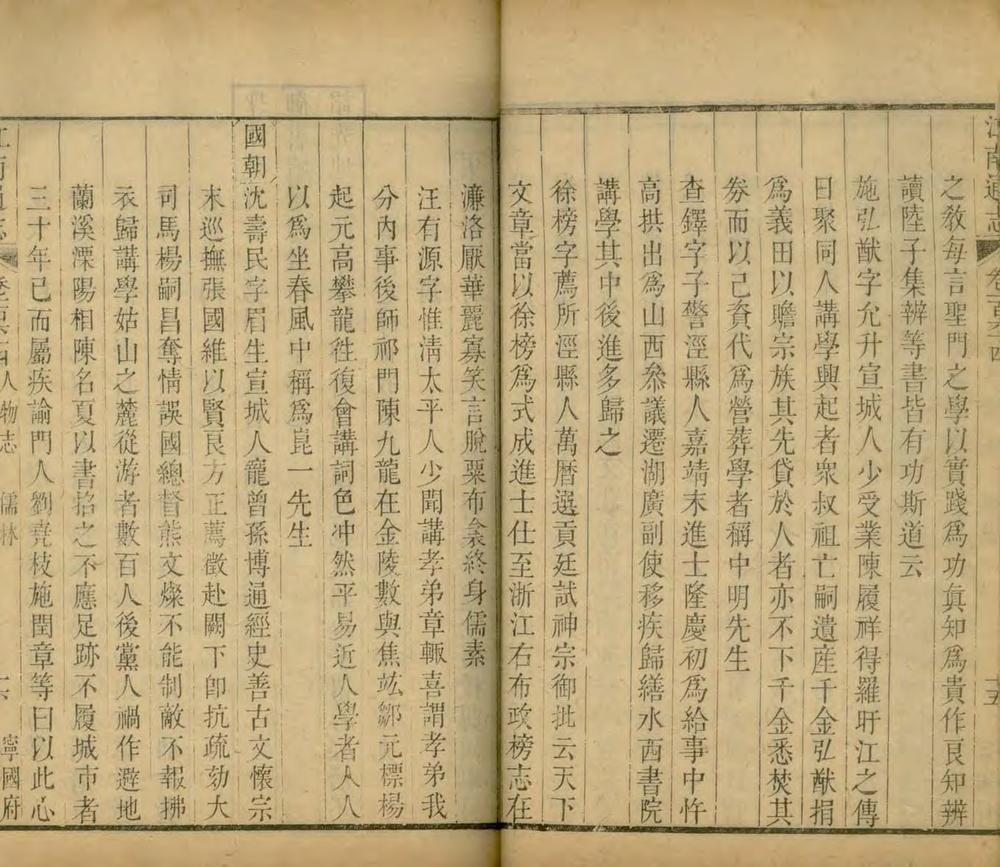 江南通志
卷
之敎每言聖門之學以實踐爲功眞知爲貴作良知辨
讀陸子集辨等書皆有功斯道云
施弘猷字允升宣城人少受業陳履祥得羅旴江之傳
日聚同人講學興起者衆叔祖亡嗣遺産千金弘猷捐
爲義田以贍宗族其先貸於人者亦不下千金悉焚其
劵而以己貲代爲營葬學者稱中明先生
查鐸字子警涇縣人嘉靖末進士隆慶初爲給事中忤
高拱出爲山西叅議遷湖廣副使移疾歸繕水西書院
講學其中後進多歸之
徐榜字薦所涇縣人萬曆選貢廷試神宗御批云天下
文章當以徐榜爲式成進士仕至浙江右布政榜志在
濂洛厭華麗寡笑言脫粟布衾終身儒素
汪有源字惟淸太平人少聞講孝弟章輒喜謂孝弟我
分內事後師祁門陳九龍在金陵數與焦竑鄒元標楊
起元高攀龍徃復會講詞色冲然平易近人學者人人
以爲坐春風中稱爲崑一先生
國朝沈壽民字眉生宣城人寵曾孫博通經史善古文懷宗
末巡撫張國維以賢良方正薦徵赴闕下卽抗疏劾大
司馬楊嗣昌奪情誤國總督熊文燦不能制敵不報拂
衣歸講學姑山之麓從游者數百人後黨人禍作避地
蘭溪溧陽相陳名夏以書招之不應足跡不履城市者
三十年已而屬疾諭門人劉堯枝施閏章等曰以此心
江南通志
人物志 儒林
寧國府